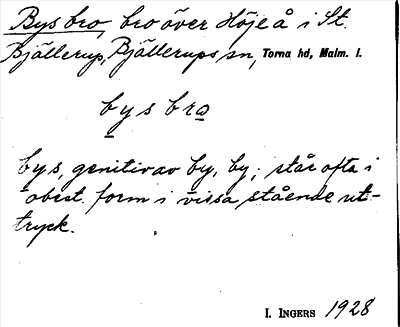 Bysbro, bro över Höjeå i St.
Bjällerup, Bjällerups sn, Torna hd, Malm. l.
bysbro
bys, genitiv av by, by; står ofta i
obest. form i vissa stående ut-
tryck.
I. INGERS 1928